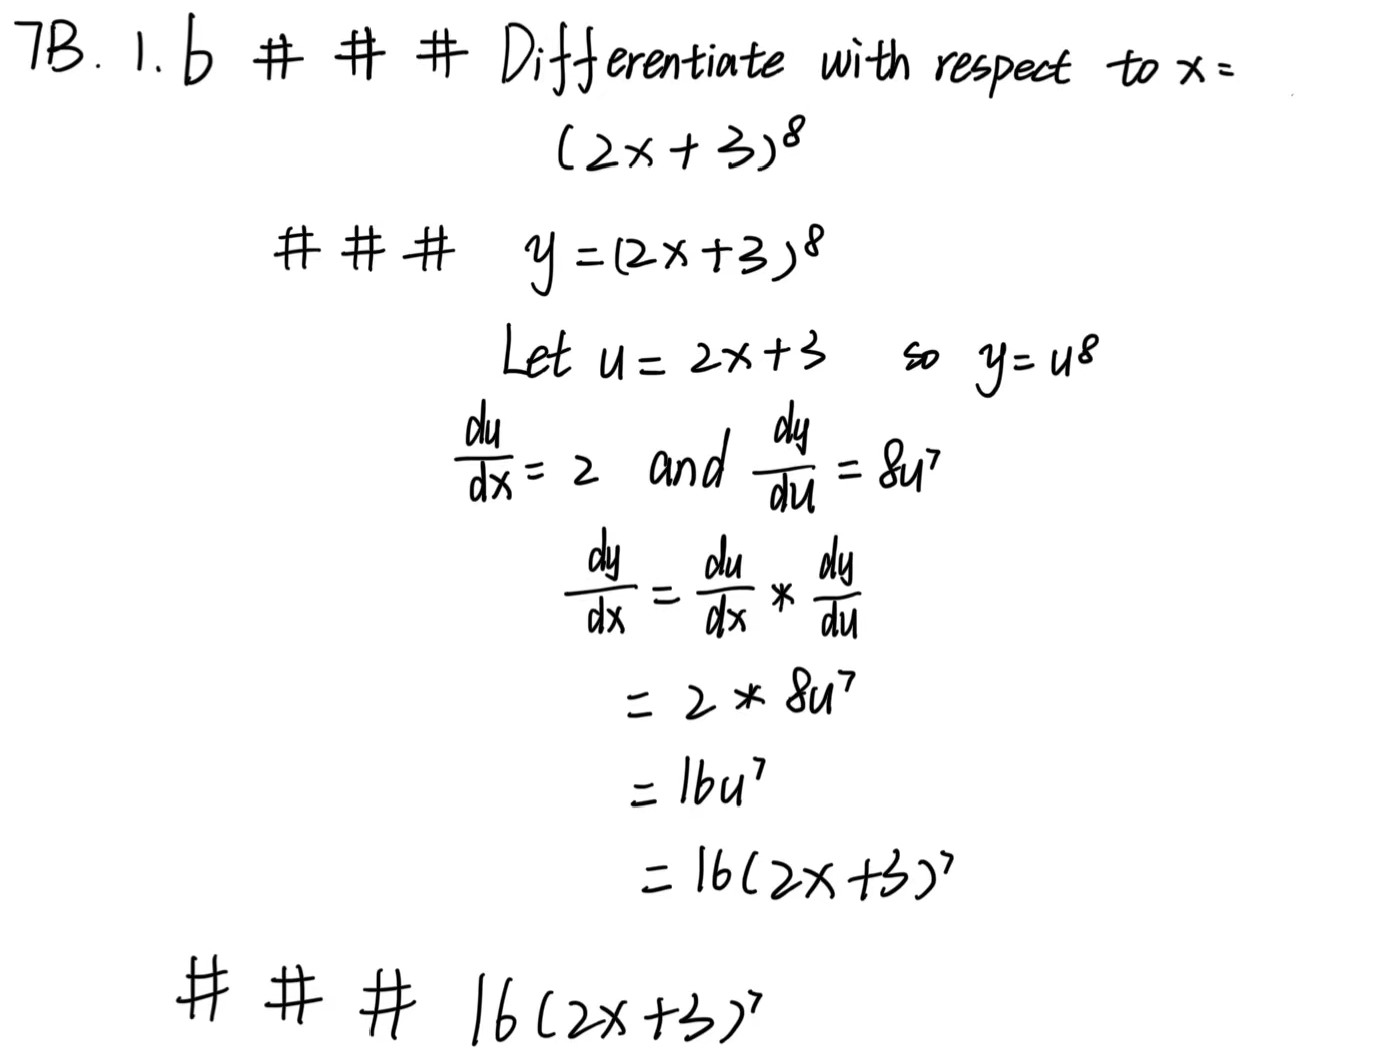 7B. 1. b # # # Differentiate with respect to x =
(2x + 3)^8
# # # y = (2x+3)^8
Let u = 2x+3 so y = u^8
du/dx = 2 and dy/du = 8u^7
dy/dx = du/dx * dy/du
= 2 * 8u^7
= 16u^7
= 16(2x+3)^7
# # # 16(2x+3)^7